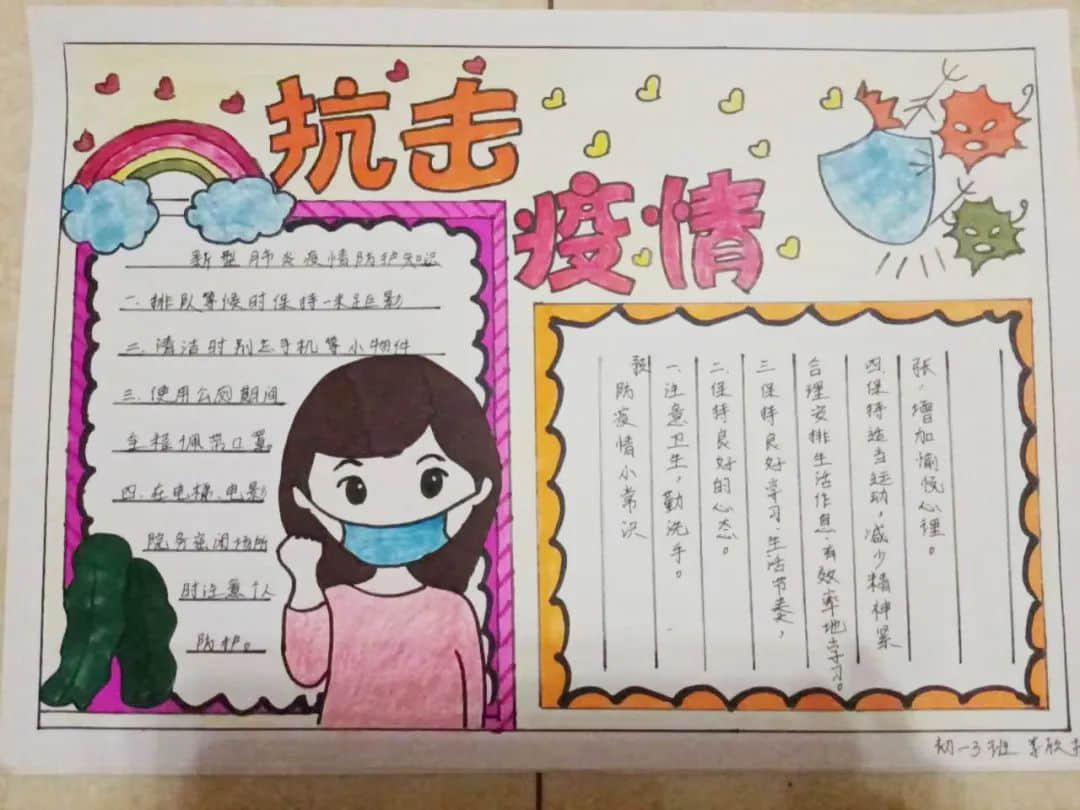 抗击
疫情
新型肺炎疫情防护知识
一.排队等候时保持一米距影
二.清洁时别忘手机等小物件
三.使用公厕期间
全程佩带口罩
四.在电梯、电影
院等密闭场所
时注意个人
防护。
预防疫情小常识
一.注意卫生，勤洗手。
二.保持良好的心态。
三.保持良好学习.生活节奏，
合理安排生活作息.有效率地学习。
四.保持适当运动，减少精神紧
张，增加愉悦心理。
初一3班